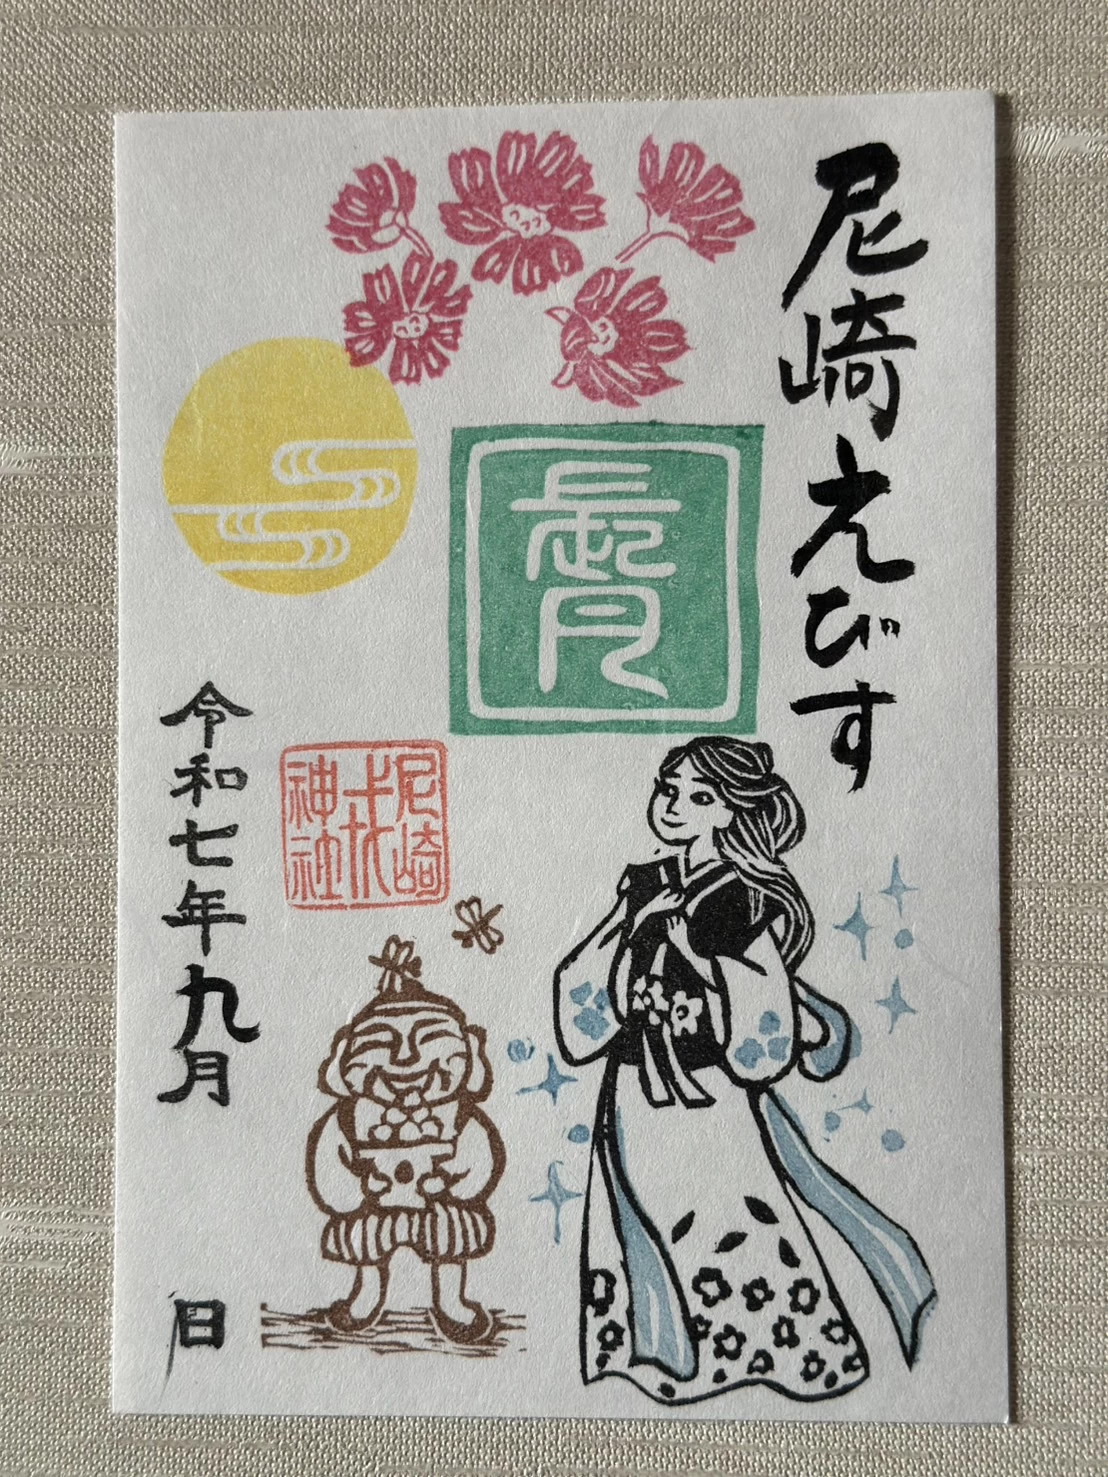 尼崎えびす
長月
尼崎
戎
神社
令和七年九月
日